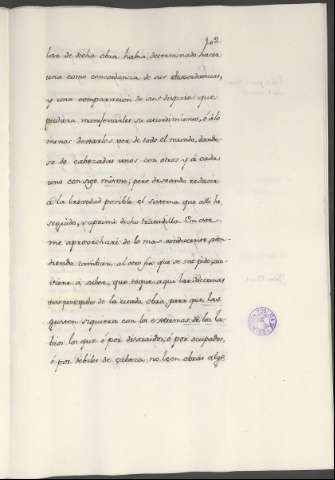 102
lan de dicha obra habia determinado hacer
una como concordancia de sus discordancias,
y una comparacion de sus disputas que
pudiera manifestarles su aturdimiento, ó á lo
menos dexarlos ver de todo el mundo, dando-
se de cabezadas unos con otros y á cada
uno consigo mismo; pero deseando reducir
á la brevedad posible el sistema que alli he
seguido, suprimí dicho trabajillo. Con este
me aprovecharé de lo mas conducente, aten-
diendo tambien al otro fin que se me pide,
á saber, que toque aqui las décimas
mas principales de la citada obra, para que las
gusten siquiera con los extremos de los la-
bios los que ó por desidiados, ó por ocupados,
ó por débiles de cabeza, no leen obras algo